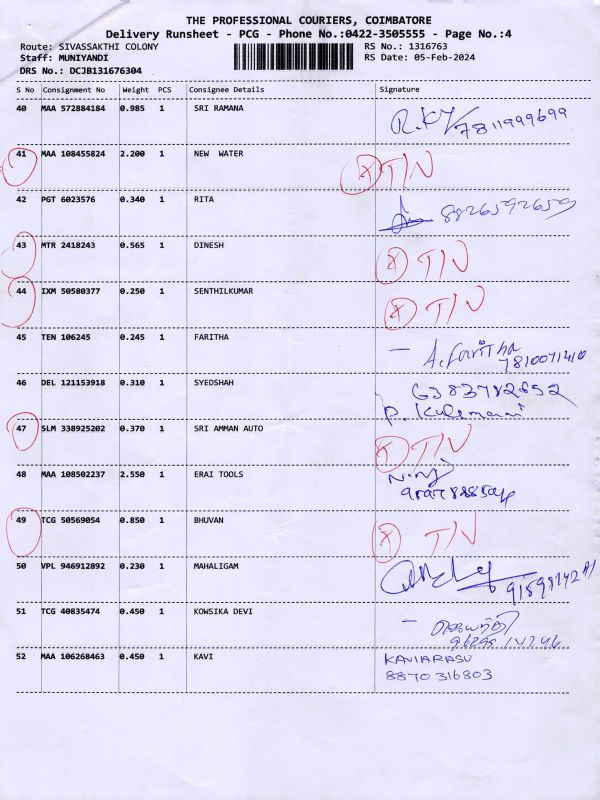 THE PROFESSIONAL COURIERS, COIMBATORE
Delivery Runsheet - PCG - Phone No.:0422-3505555 - Page No.:4
Route: SIVASSAKTHI COLONY RS No.: 1316763
Staff: MUNIYANDI RS Date: 05-Feb-2024
DRS No.: DCJB131676304
S No Consignment No Weight PCS Consignee Details Signature
40 MAA 572884184 0.985 1 SRI RAMANA 7811999699
41 MAA 108455824 2.200 1 NEW WATER X T/N
42 PGT 6023576 0.340 1 RITA 8826592659
43 MTR 2418243 0.565 1 DINESH X T/N
44 IXM 50580377 0.250 1 SENTHILKUMAR X T/N
45 TEN 106245 0.245 1 FARITHA A. Faritha
7810071410
46 DEL 121153918 0.310 1 SYEDSHAH 6383782652
47 SLM 338925202 0.370 1 SRI AMMAN AUTO X T/N
48 MAA 108502237 2.550 1 ERAI TOOLS
49 TCG 50569054 0.850 1 BHUVAN X T/N
50 VPL 946912892 0.230 1 MAHALIGAM
51 TCG 40835474 0.450 1 KOWSIKA DEVI
52 MAA 106268463 0.450 1 KAVI KAVIARASU
8870316803